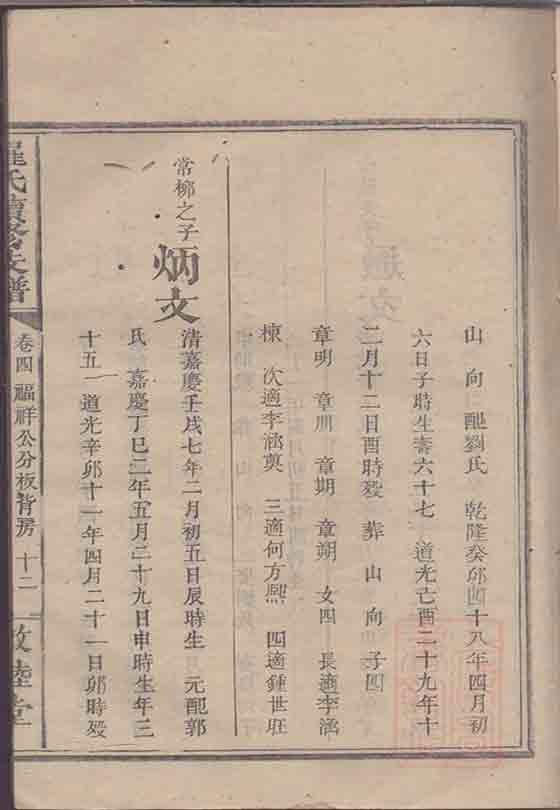 山 向 配劉氏 乾隆癸卯四十八年四月初
六日子時生壽六十七 道光己酉二十九年十
二月十二日酉時殁 葬 山 向 子四
章明 章冊 章期 章朔 女四 長適李涵
棟 次適李涵奠 三適何方熙 四適鍾世珏
常柳之子 炳文
清嘉慶壬戌七年二月初五日辰時生 元配郭
氏 嘉慶丁巳二年五月二十九日申時生年三
十五 道光辛卯十一年四月二十一日卯時殁
羅氏續修支譜 卷四 福祥公分板背房 十二 敦睦堂